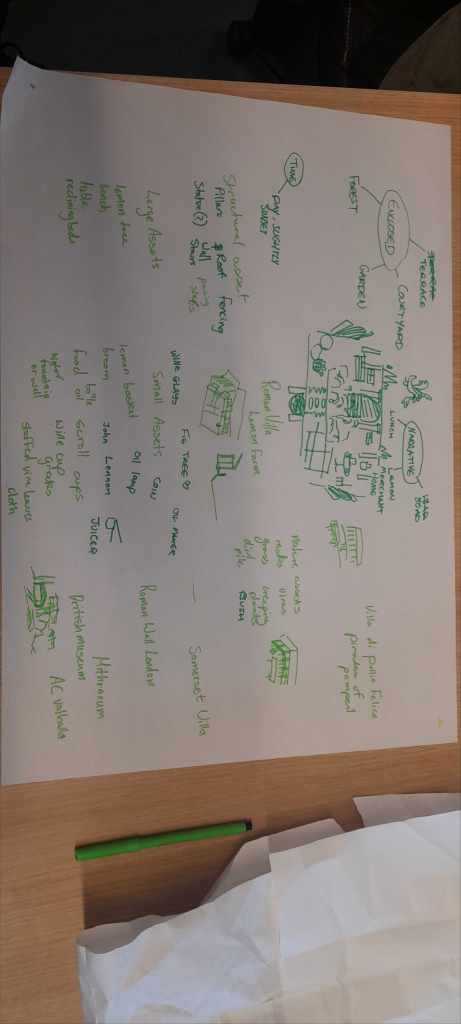 TERRACE
ENCLOSED
COURTYARD
FOREST
GARDEN
TIME
DAY, SLIGHTLY
SUNSET
NARRATIVE
LUNCH
LEMON
MERCHANT
HOME
BOARD
Villa di pollio Felice
pompeii
Structural asset
Pillars
Roof
fencing
Statue(?)
Wall
Stairs
Roman Villa
Lemon Farm
Nature assets
rocks
vines
grass
creeping
plants
dirt
pile
BUSH
Large Assets
lemon tree
bench
table
reclining beds
WINE GLASS
FIG TREE
OIL MAKER
Small Assets
COIN
lemon basket
OIL lamp
broom
John Lennon
JUICER
bottle
food
oil
scroll
cups
Water
fountain
or well
wine cup
grapes
stuffed vine leaves
cloth
Somerset Villa
Roman Wall London
Mithraeum
British museum
AC valhalla